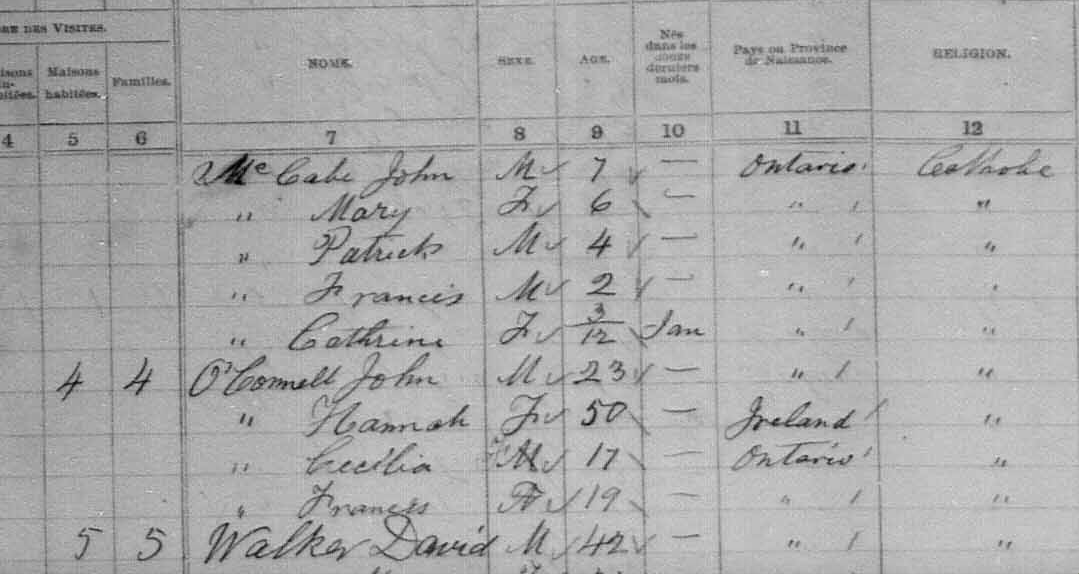 RE DES VISITES.
Maisons habitées.
Familles.
NOMS.
SEXE.
AGE.
Nés dans les douze derniers mois.
Pays ou Province de Naissance.
RELIGION.
4 5 6 7 8 9 10 11 12
Mc Cabe John M 7 — Ontario Catholic
" Mary F 6 — " "
" Patrick M 4 — " "
" Francis M 2 — " "
" Cathrine F 3/12 Jan " "
4 4 O'Connell John M 23 — " "
" Hannah F 50 — Ireland "
" Cecilia 17 — Ontario "
" Francis 19 — " "
5 5 Walker David M 42 — " "